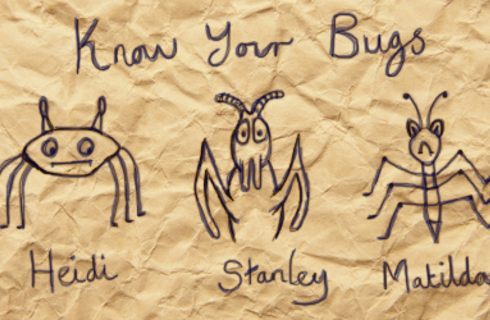 Know Your Bugs
Heidi Stanley Matilda